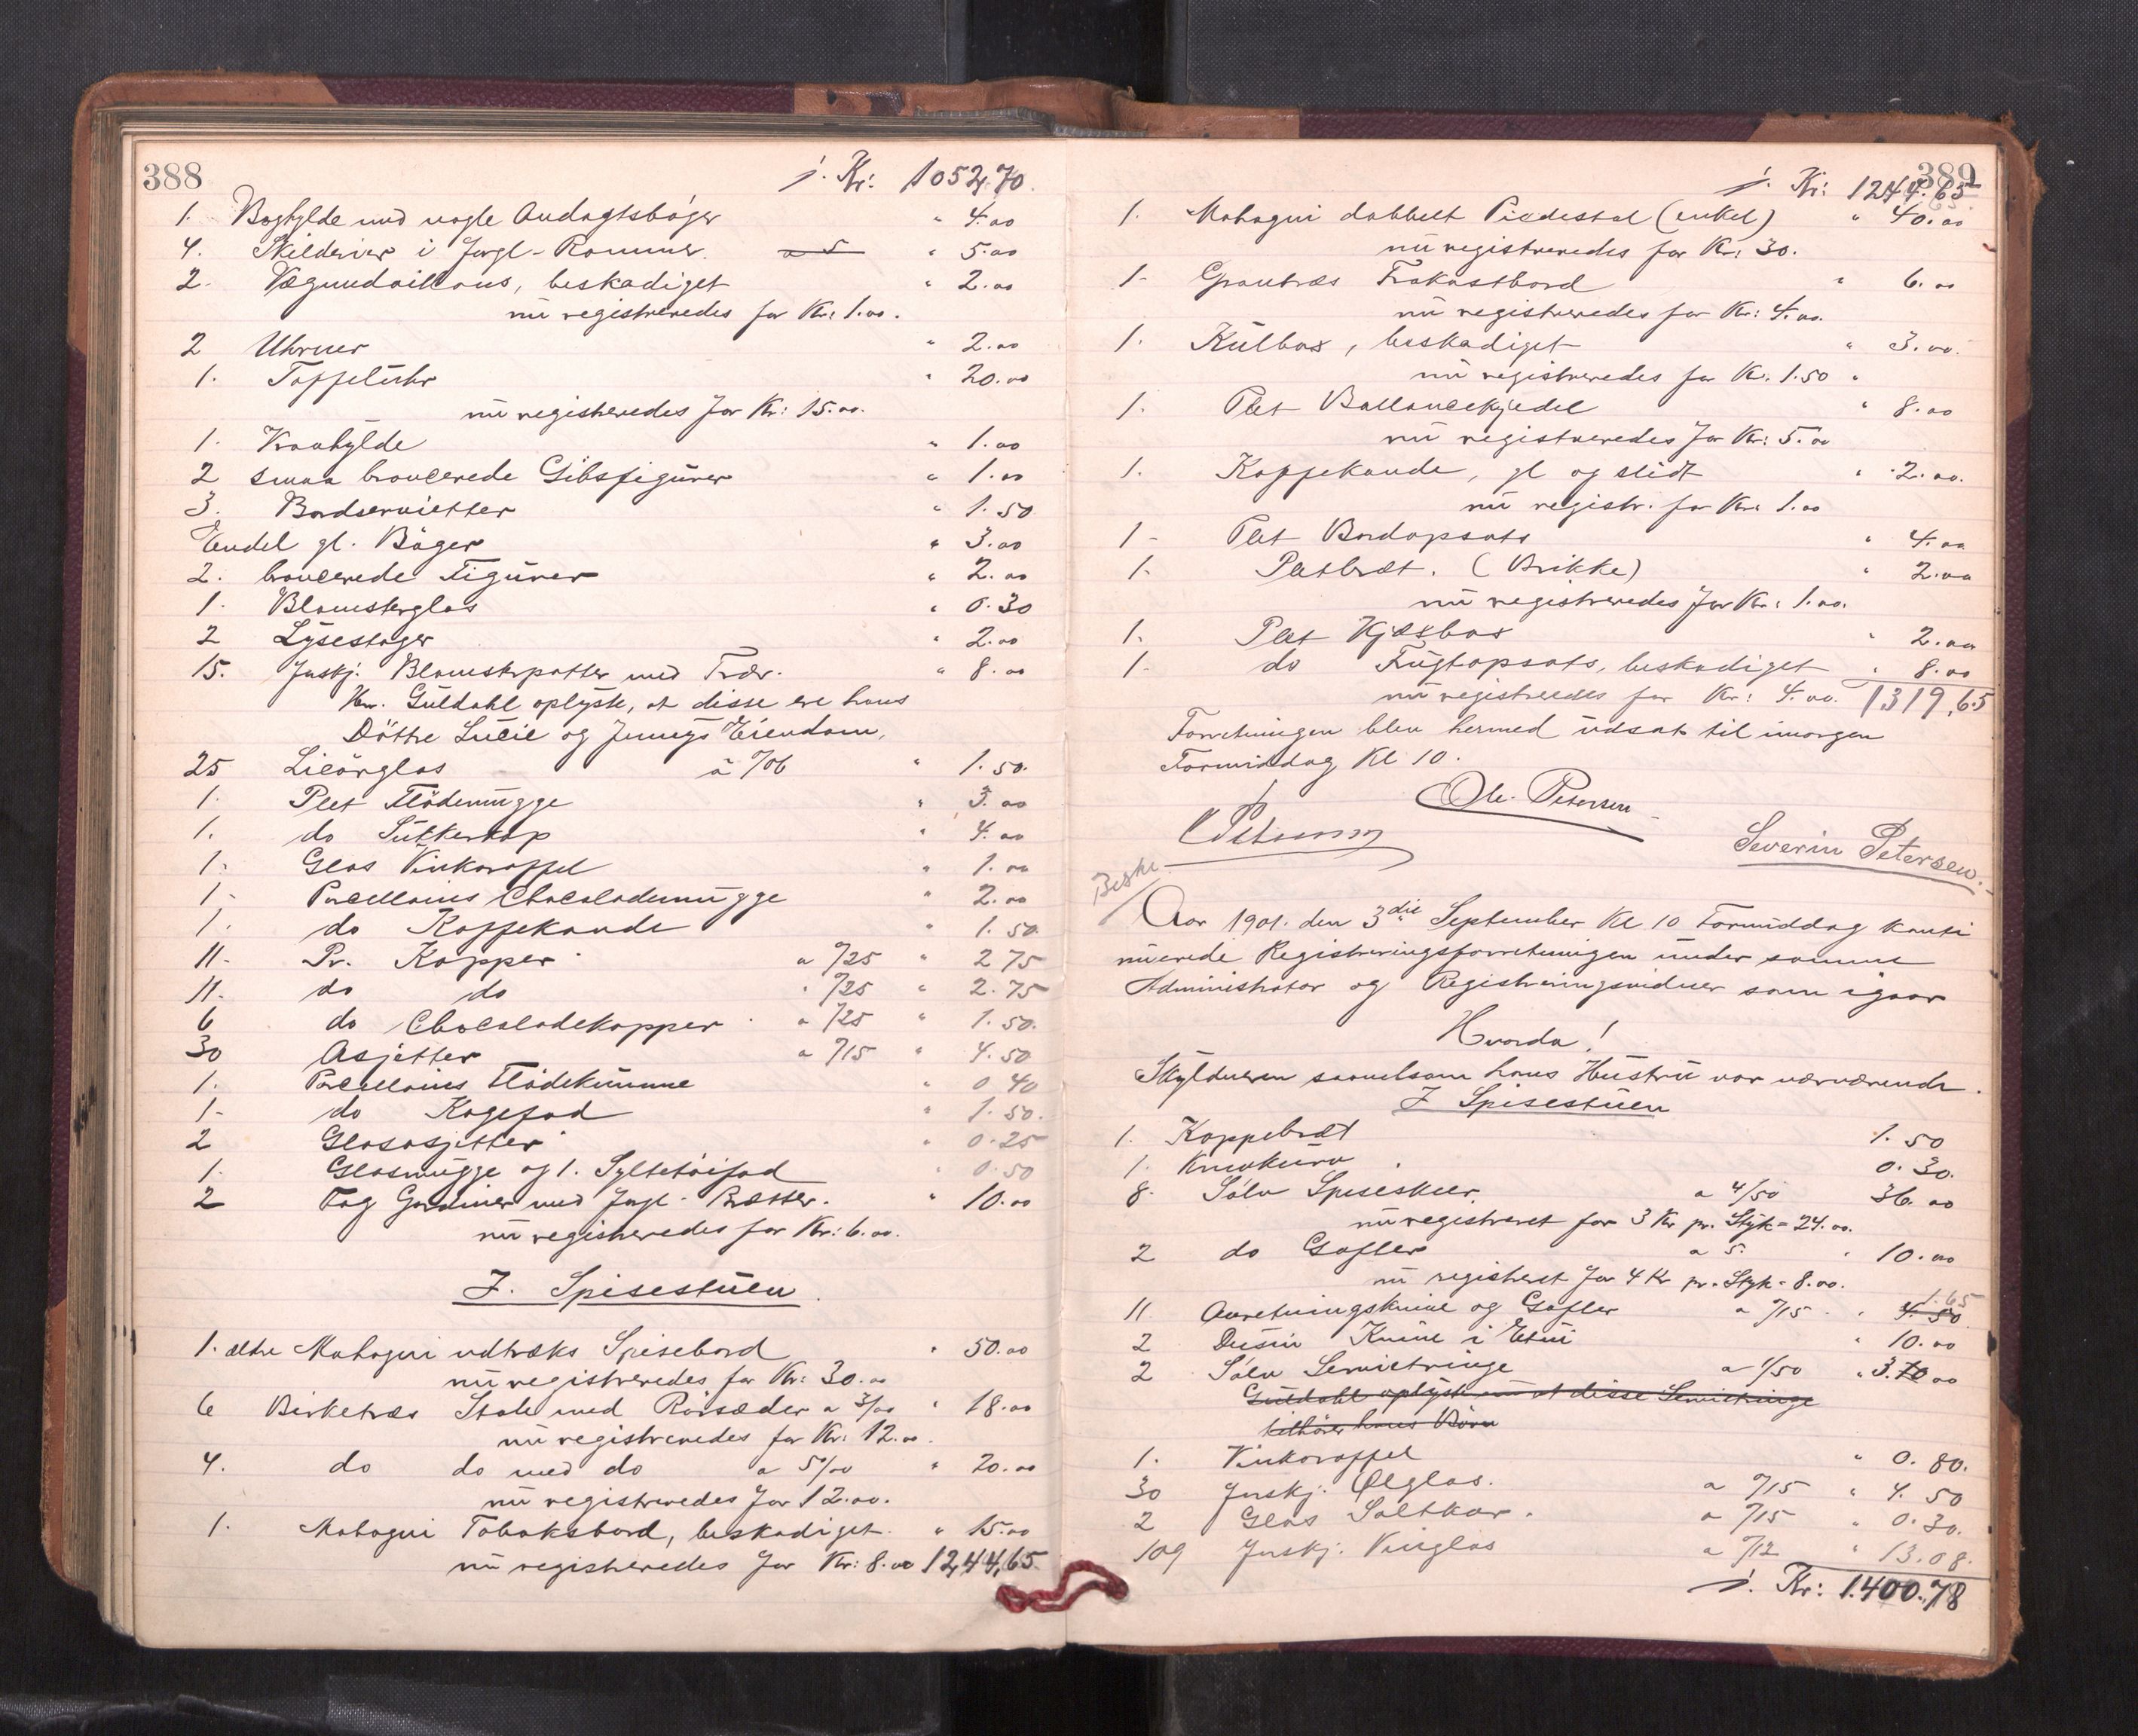 388
i. Kr: 1052,70
1. Boghylde med nogle Andagtsbøger " 4.00
4. Skilderier i Forgl-Rammer. a 5 " 5.00
2. Vægmedaillons, beskadiget " 2.00
nu registreredes for Kr: 1.00.
2 Uhrner " 2.00
1. Taffeluhr " 20.00
nu registreredes for Kr: 15.00.
1. Krohylde " 1.00
2 smaa broncerede Gibsfigurer " 1.00
3. Bordservietter " 1.50
Endel gl. Bøger " 3.00
2. broncerede Figurer " 2.00
1. Blomsterglas " 0.30
2 Lysestager " 2.00
15. Forskj. Blomsterpotter med Trær. " 8.00
Hr. Guldahl oplyste, at disse ere hans
Döttre Lucie og Jennys Eiendom,
25 Licörglas à "/06 " 1.50.
1. Plet Flödemugge " 3.00
1. do Sukkerkop " 4.00
1. Glas Vinkaraffel " 1.00
1. Porcellains Chocolademugge " 2.00
1. do Kaffekande " 1.50.
11. Pr. Kopper a "/25 " 2 75
11. do do " "/25 " 2.75
6 do Chocoladekopper a "/25 " 1.50.
30 Asjetter a "/15 " 4.50
1. Porcellains Flödekumme " 0 40
1. do Kagefad " 1.50.
2 Glasasjetter " 0.25
1. Glasmugge og 1. Syltetöifad " 0.50
2 Fag Gardiner med Forgl. Brætter. " 10.00
nu registreredes for Kr: 6.00.
I. Spisestuen.
1. ældre Mahogni udtræks Spisebord " 50.00
nu registreredes for Kr: 30.00
6 Birketræs Stole med Rörsæder a 3/00 " 18.00
nu registreredes for Kr: 12.00.
4. do do med do a 5/00 " 20.00
nu registreredes for 12.00.
1. Mahogni Tobaksbord, beskadiget. " 15.00
nu registreredes for Kr: 8.00 1244,65.
389
i. Kr: 1244.65
1. Mahogni dobbelt Piedestal (enkel) " 40.00
nu registreredes for Kr: 30.
1- Grantræs Frokostbord " 6.00
nu registreredes for Kr: 4.00.
1. Kulbox, beskadiget " 3.00.
nu registreredes for Kr. 1.50 "
1. Plet Ballancekjedel " 8.00
nu registreredes for Kr: 5.00
1. Kaffekande, gl og slidt " 2.00.
nu registr. for Kr: 1.00
1- Plet Bordopsats " 4.00
1. Pletbræt. (Brikke) " 2.00
nu registreredes for Kr: 1.00.
1. Plet Kjæxbox " 2.00
1- do Frugtopsats, beskadiget " 8.00
nu registreredes for Kr: 4.00. 1319,65
Forretningen blev hermed udsat til imorgen
Formiddag Kl 10.
Ole Petersen
Severin Petersen.
Beskr.
Aar 1901. den 3die September Kl 10 Formiddag konti
nuerede Registreringsforretningen under samme
Administrator og Registreringsvidner som igaar
Hvorda!
Skyldneren saavelsom hans Hustru var nærværende.
I Spisestuen
1. Koppebræt 1.50
1. Knivkurv 0.30.
8. Sölv Spiseskeer. a 4/50 36.00
nu registreret for 3 Kr pr. Styk = 24.00.
2 do Gafler a 5. " 10.00
nu registreret for 4 Kr pr. Styk = 8.00.
11 Anretningsknive og Gafler a "/15 " 4.50 1.65
2 Dusin Knive i Etui " 10.00
2 Sölv Servietringe a 1/50 " 3.00
Guldahl oplyste nu at disse Servietringe
tilhörer hans Börn
1. Vinkaraffel " 0.80.
30 Forskj. Ølglas. a "/15 " 4.50
2 Glas Saltkar. a "/15 " 0.30.
109 Forskj. Vinglas a "/12 " 13.08.
i. Kr: 1.400.78